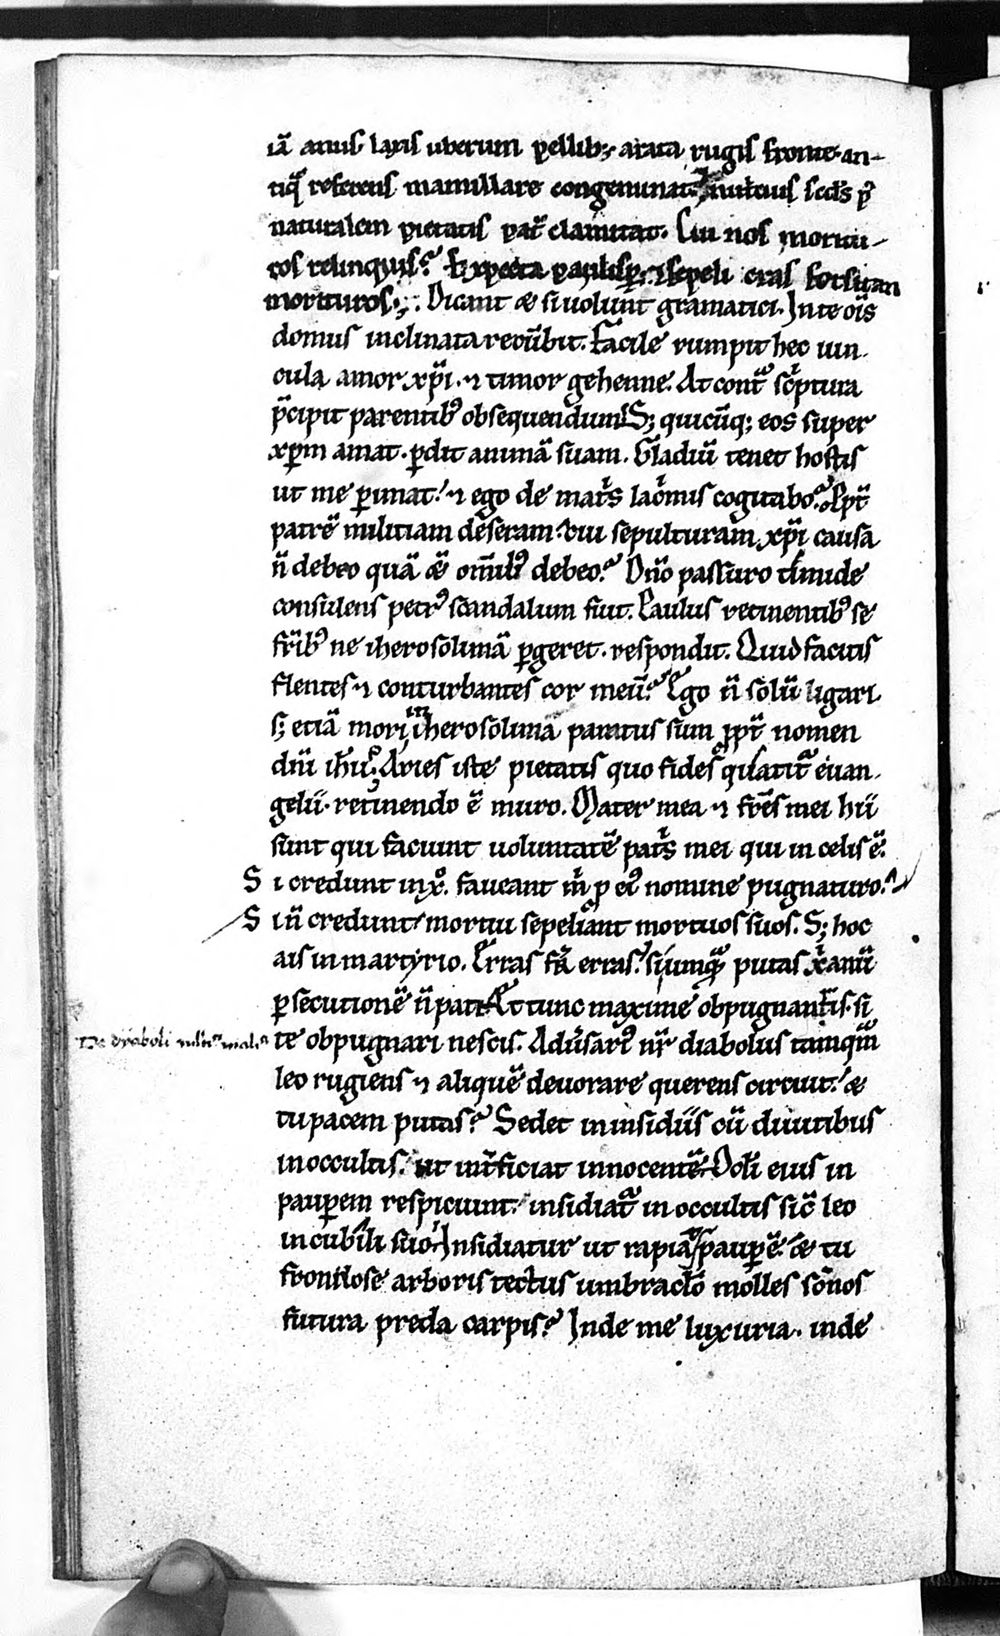 iā anus laxis uberum pellib; arata rugis fronte an-
tiqͣ referens mamillare congeminat. nutricius scd's pͥ
naturalem pietatis pat̄ clamitat. Cui nos moritu-
ros relinquis? Expecta paulisp̱ ⁊ sepeli cras forsitan
morituros; Dicant & si uolunt gramatici. Inte oīs
domus inclinata recūbit. Facile rumpit hec uin
cula amor xp̄i ⁊ timor gehenne. At contͣ sc̓ptura
p̄cipit parentib⁹ obsequendum S; quicūq; eos super
xp̄m amat p̱dit animā suam. Gladiū tenet hostis
ut me p̱imat ⁊ ego de mat̓s lac̓mis cogitabo? Ppt̄
patrē militiam deseram cui sepulturam xp̄i causa
n̄ debeo quā & om̄ib⁹ debeo? Dn̄o passuro timide
consulens petr⁹ scandalum fuit. Paulus retinentib⁹ se
fr̄ib⁹ ne iherosolimā p̱geret respondit. Quid facitis
flentes ⁊ conturbantes cor meū? Ego n̄ solū ligari
s; etiā mori in iherosolima paratus sum ppt̄ nomen
dn̄i ih̄u; Aries iste pietatis quo fides quatit͛ euan
gelii retinendo ē muro. Mater mea ⁊ fr̄es mei hii
sunt qui faciunt uoluntatē pat̓s mei qui in celis ē.
S i credunt in xp̄o faueant m̓ p eī⁹ nomine pugnaturo.
S i n̄ credunt mortui sepeliant mortuos suos. S; hoc
ais in martyrio. Erras fr̄ erras si umqͣm putas x̓anū
p̱secutionē n̄ pati Et tunc maxime obpugnaris si
De dyaboli
te obpugnari nescis. Adūsari⁹ nr̄ diabolus tamqͣm
leo rugiens ⁊ aliquē deuorare querens circuit &
tu pacem putas? Sedet in insidiis cū diuitibus
in occultis ut int̄ficiat innocentē. Oc̄li eius in
paup̱em respiciunt insidiat͛ in occultis sic̄ leo
in cubili suo Insidiatur ut rapiat paup̱ē & tu
frondose arboris tectus umbraclo̓ molles sōnos
futura preda carpis? Inde me luxuria inde